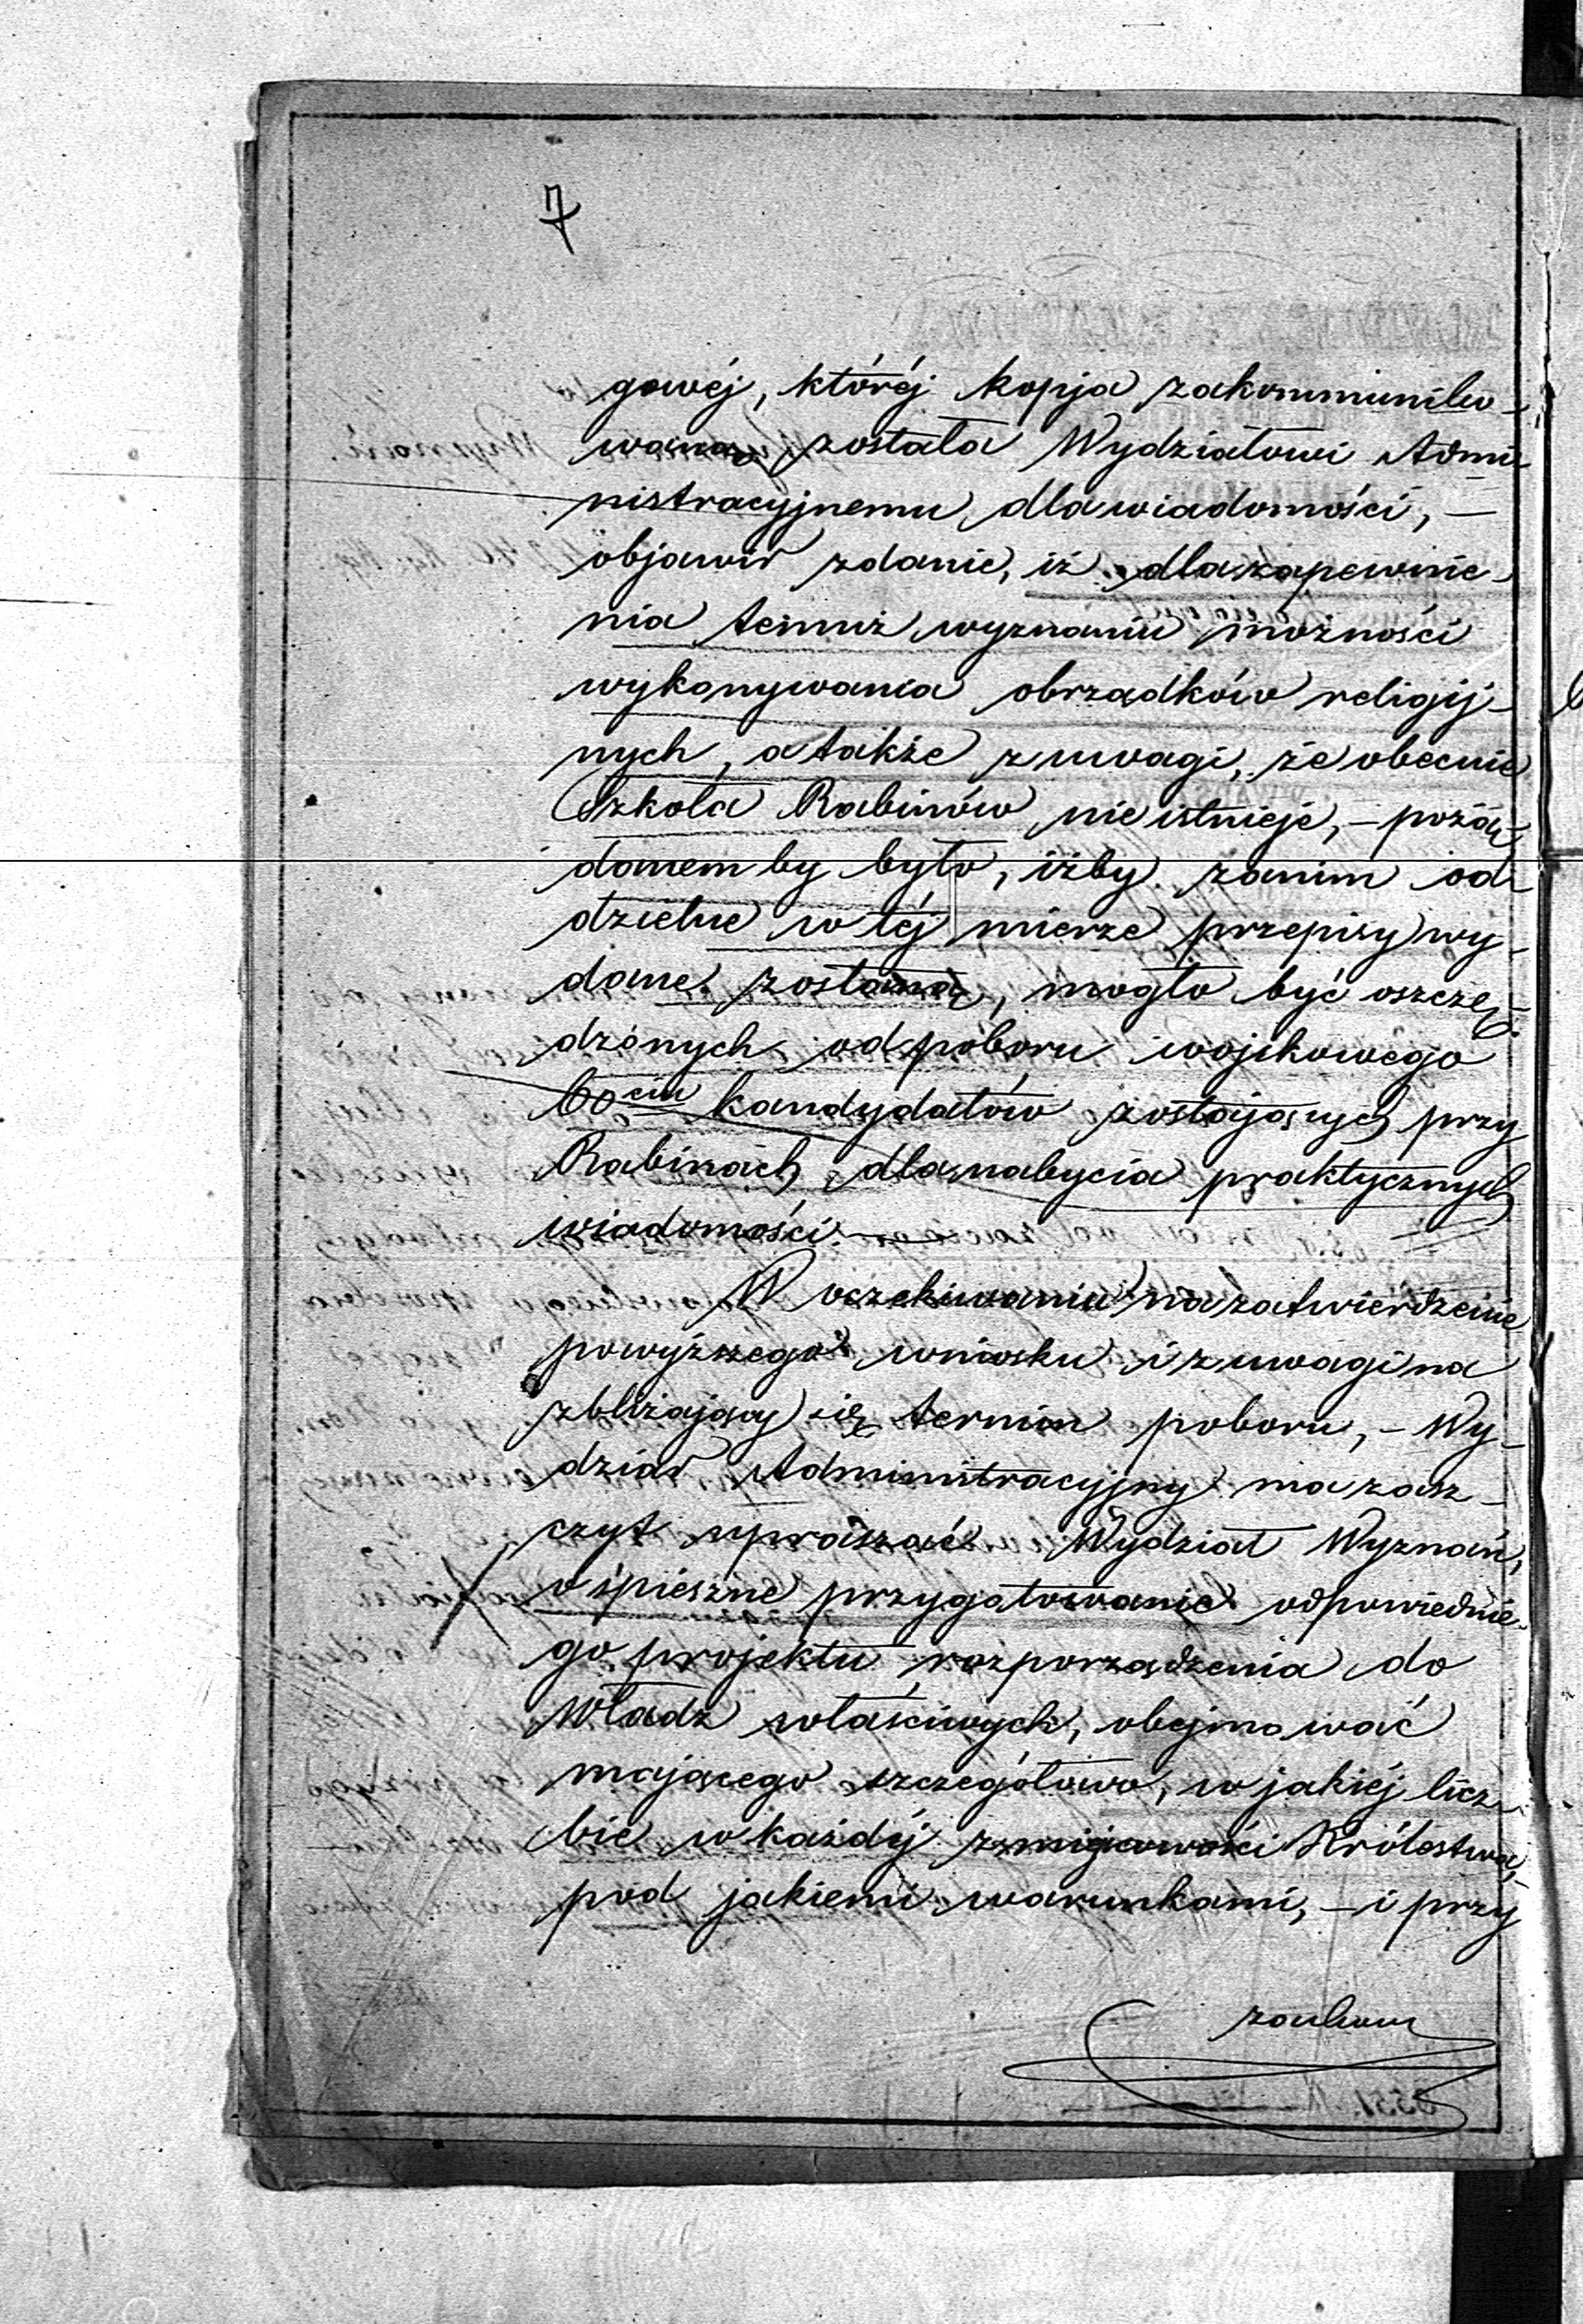 7
gowéj, któréj kopja zakommuniko-
wana została Wydziałowi Admi-
nistracyjnemu dla wiadomości, —
objawił zdanie, iż dla zapewnie-
nia temuż wyznaniu możności
wykonywania obrządków religij-
nych, a także z uwagi, że obecnie
Szkoła Rabinów nie istnieje, – pożą-
danem by było, iżby zanim od-
dzielne w téj mierze przepisy wy-
dane zostaną, mogło być oszczę-
dzonych od poboru wojskowego
60ciu kandydatów zostających przy
Rabinach dla nabycia praktycznych
wiadomości. —
W oczekiwaniu na zatwierdzenie
powyższego wniosku i z uwagi na
zbliżający się termin poboru, – Wy-
dział Administracyjny ma zasz-
czyt upraszać Wydział Wyznań,
o śpieszne przygotowanie odpowiednie-
go projektu rozporządzenia do
Władz właściwych, obejmować
mającego szczegółowo, w jakiéj licz-
bie w każdéj z miejscowości Królestwa,
pod jakiemi warunkami, – i przy